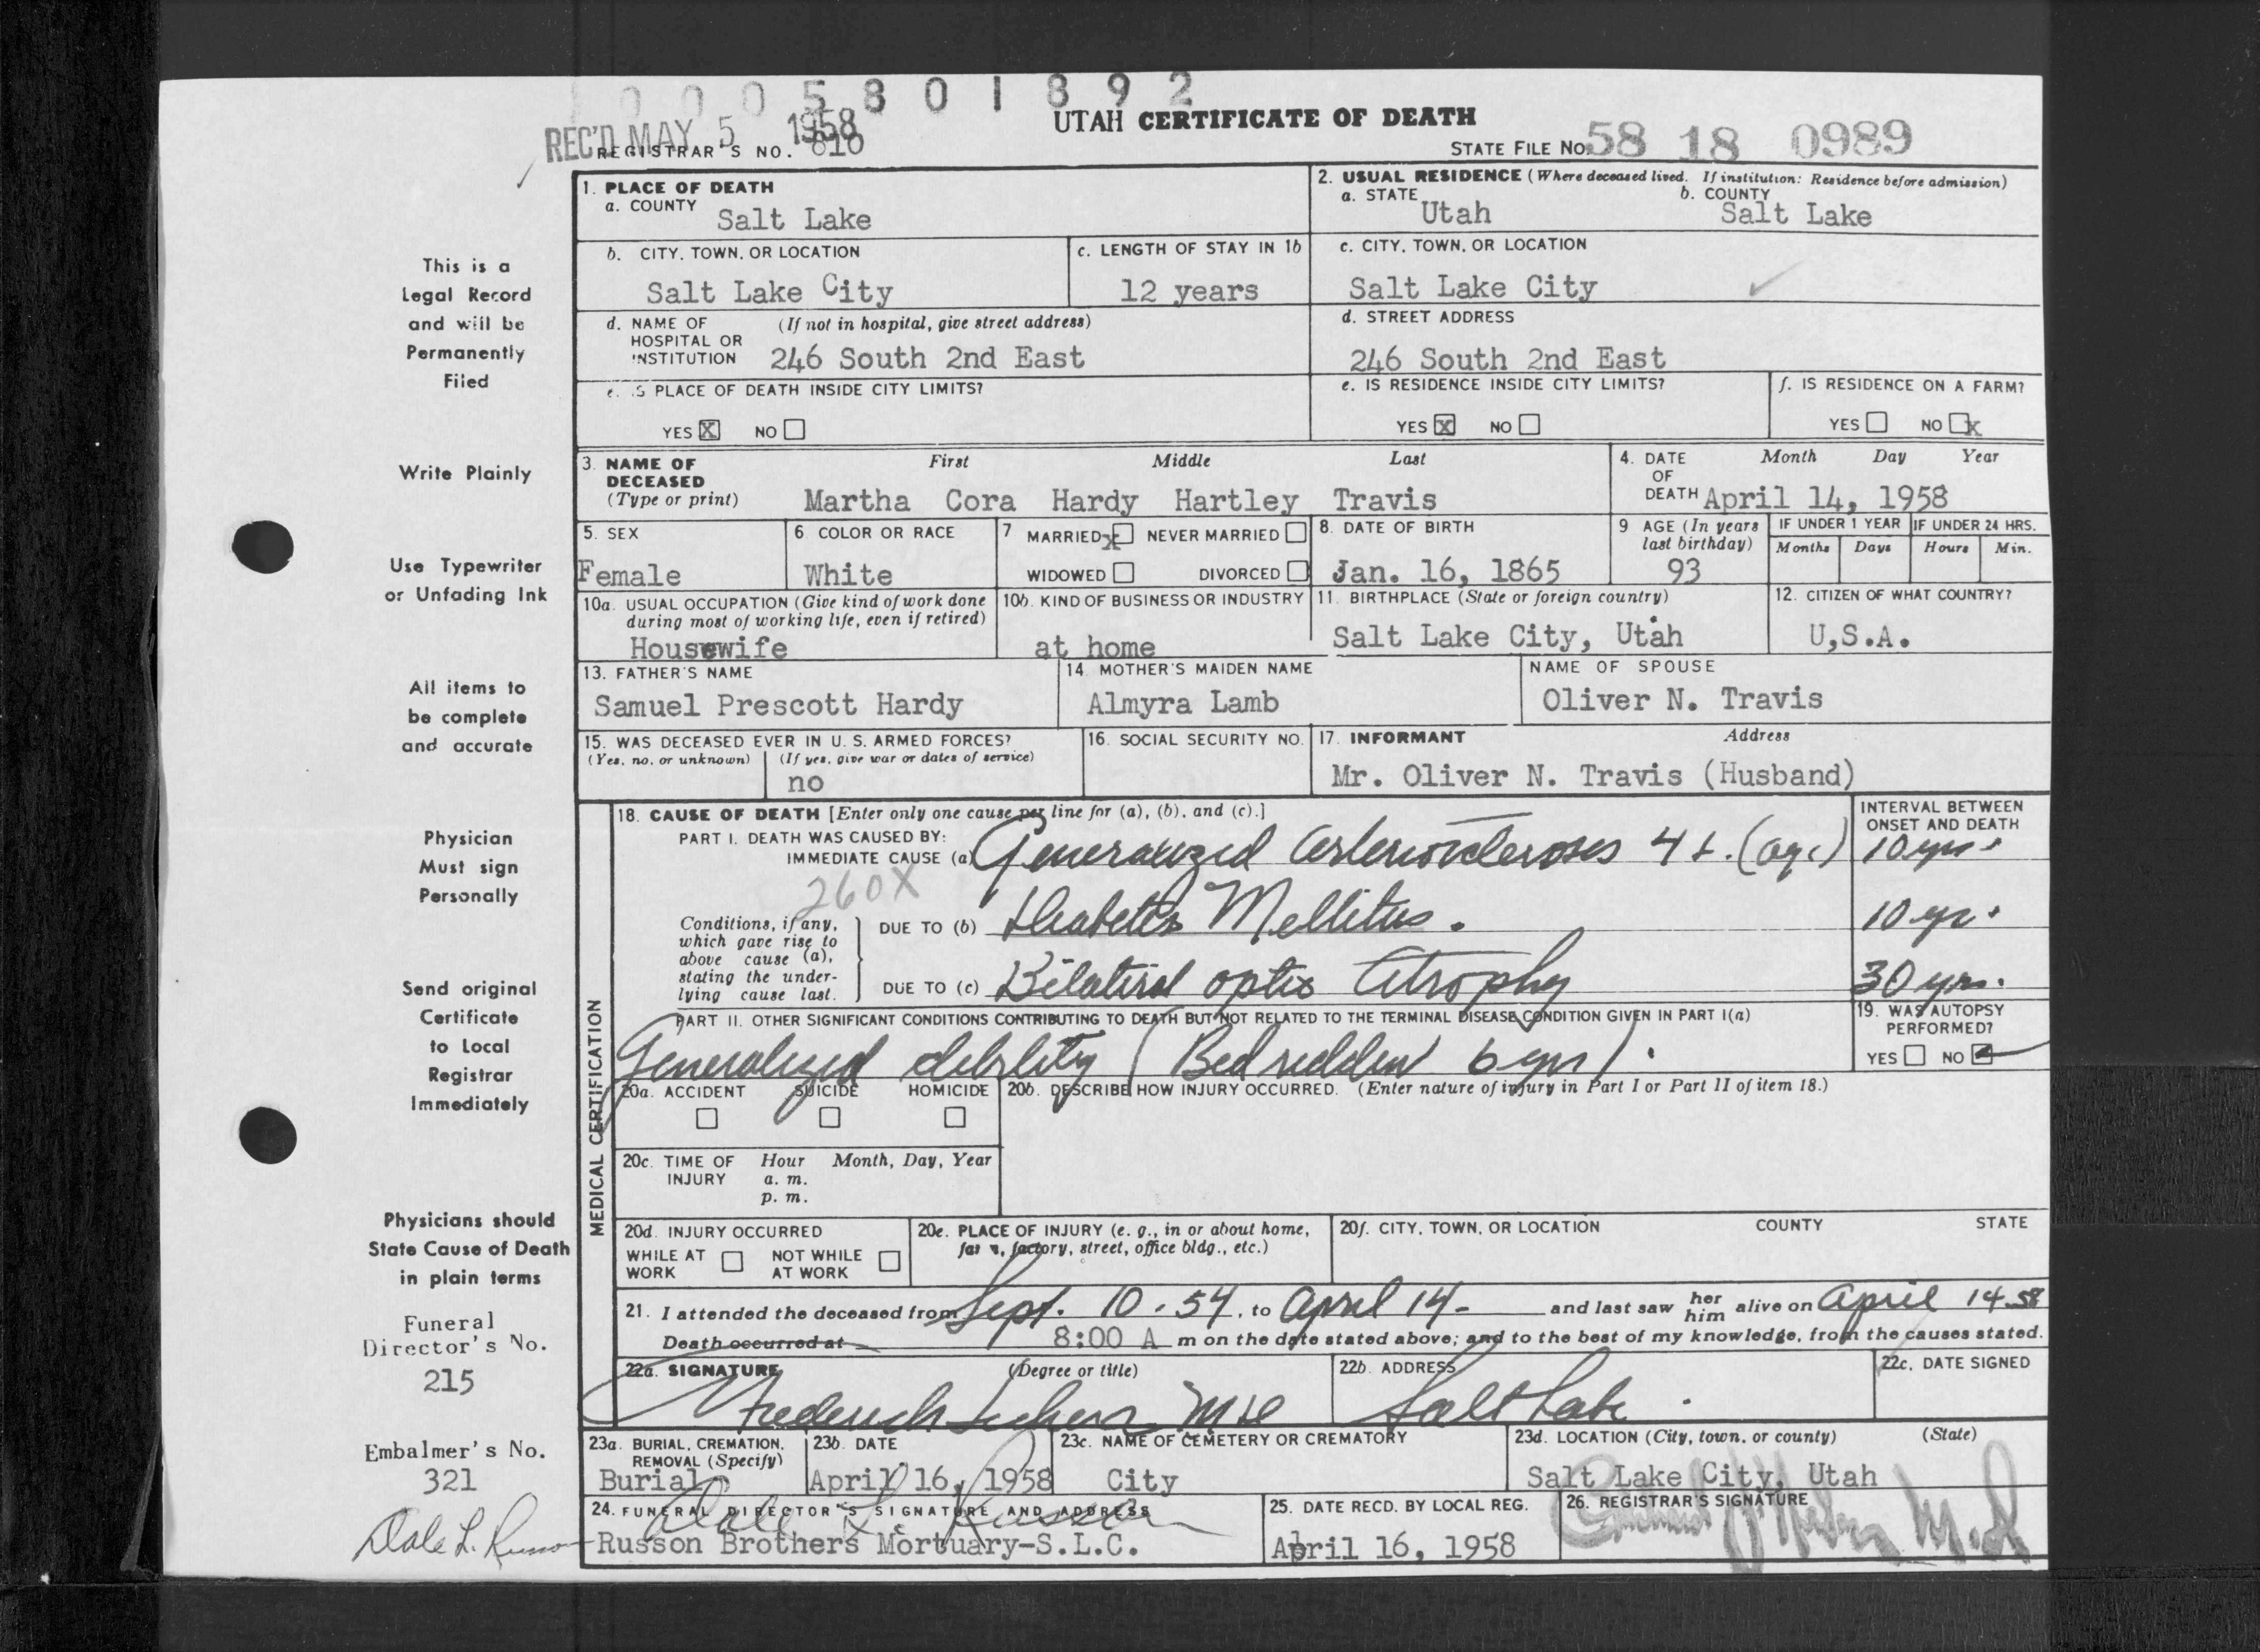 0 0 0 5 8 0 1 8 9 2
REC'D MAY 5 1958
UTAH CERTIFICATE OF DEATH
REGISTRAR'S NO. 810
STATE FILE NO. 58 18 0989
1. PLACE OF DEATH
a. COUNTY Salt Lake
2. USUAL RESIDENCE (Where deceased lived. If institution: Residence before admission)
a. STATE Utah b. COUNTY Salt Lake
b. CITY, TOWN, OR LOCATION Salt Lake City
c. LENGTH OF STAY IN 1b 12 years
c. CITY, TOWN, OR LOCATION Salt Lake City
d. NAME OF HOSPITAL OR INSTITUTION (If not in hospital, give street address) 246 South 2nd East
d. STREET ADDRESS 246 South 2nd East
e. IS PLACE OF DEATH INSIDE CITY LIMITS?
YES X NO
e. IS RESIDENCE INSIDE CITY LIMITS?
YES X NO
f. IS RESIDENCE ON A FARM?
YES NO X
3. NAME OF DECEASED (Type or print)
First Middle Last
Martha Cora Hardy Hartley Travis
4. DATE OF DEATH Month Day Year
April 14, 1958
5. SEX Female
6. COLOR OR RACE White
7 MARRIED X NEVER MARRIED
WIDOWED DIVORCED
8. DATE OF BIRTH Jan. 16, 1865
9 AGE (In years last birthday) 93
IF UNDER 1 YEAR Months Days
IF UNDER 24 HRS. Hours Min.
10a. USUAL OCCUPATION (Give kind of work done during most of working life, even if retired)
Housewife
10b. KIND OF BUSINESS OR INDUSTRY
at home
11. BIRTHPLACE (State or foreign country)
Salt Lake City, Utah
12. CITIZEN OF WHAT COUNTRY?
U,S.A.
13. FATHER'S NAME
Samuel Prescott Hardy
14. MOTHER'S MAIDEN NAME
Almyra Lamb
NAME OF SPOUSE
Oliver N. Travis
15. WAS DECEASED EVER IN U. S. ARMED FORCES?
(Yes, no, or unknown) (If yes, give war or dates of service)
no
16. SOCIAL SECURITY NO.
17. INFORMANT Address
Mr. Oliver N. Travis (Husband)
MEDICAL CERTIFICATION
18. CAUSE OF DEATH [Enter only one cause per line for (a), (b), and (c).]
INTERVAL BETWEEN ONSET AND DEATH
PART I. DEATH WAS CAUSED BY:
IMMEDIATE CAUSE (a) Generalized Arteriosclerosis 4+. (age) 10 yrs.
260X
Conditions, if any, which gave rise to above cause (a), stating the underlying cause last.
DUE TO (b) Diabetes Mellitus. 10 yr.
DUE TO (c) Bilateral optic Atrophy 30 yrs.
PART II. OTHER SIGNIFICANT CONDITIONS CONTRIBUTING TO DEATH BUT NOT RELATED TO THE TERMINAL DISEASE CONDITION GIVEN IN PART I(a)
Generalized debility (Bedridden 6 yrs).
19. WAS AUTOPSY PERFORMED?
YES NO
20a. ACCIDENT SUICIDE HOMICIDE
20b. DESCRIBE HOW INJURY OCCURRED. (Enter nature of injury in Part I or Part II of item 18.)
20c. TIME OF INJURY Hour Month, Day, Year
a. m.
p. m.
20d. INJURY OCCURRED
WHILE AT WORK NOT WHILE AT WORK
20e. PLACE OF INJURY (e. g., in or about home, farm, factory, street, office bldg., etc.)
20f. CITY, TOWN, OR LOCATION COUNTY STATE
21. I attended the deceased from Sept. 10 - 54, to April 14 - and last saw her him alive on April 14-58
Death occurred at 8:00 A m on the date stated above; and to the best of my knowledge, from the causes stated.
22a. SIGNATURE (Degree or title)
Frederick MD
22b. ADDRESS
Salt Lake.
22c. DATE SIGNED
23a. BURIAL, CREMATION, REMOVAL (Specify)
Burial
23b. DATE
April 16, 1958
23c. NAME OF CEMETERY OR CREMATORY
City
23d. LOCATION (City, town, or county) (State)
Salt Lake City, Utah
24. FUNERAL DIRECTOR'S SIGNATURE AND ADDRESS
Dale L. Russon
Russon Brothers Mortuary-S.L.C.
25. DATE RECD. BY LOCAL REG.
April 16, 1958
26. REGISTRAR'S SIGNATURE
This is a
Legal Record
and will be
Permanently
Filed
Write Plainly
Use Typewriter
or Unfading Ink
All items to
be complete
and accurate
Physician
Must sign
Personally
Send original
Certificate
to Local
Registrar
Immediately
Physicians should
State Cause of Death
in plain terms
Funeral
Director's No.
215
Embalmer's No.
321
Dale L. Russon